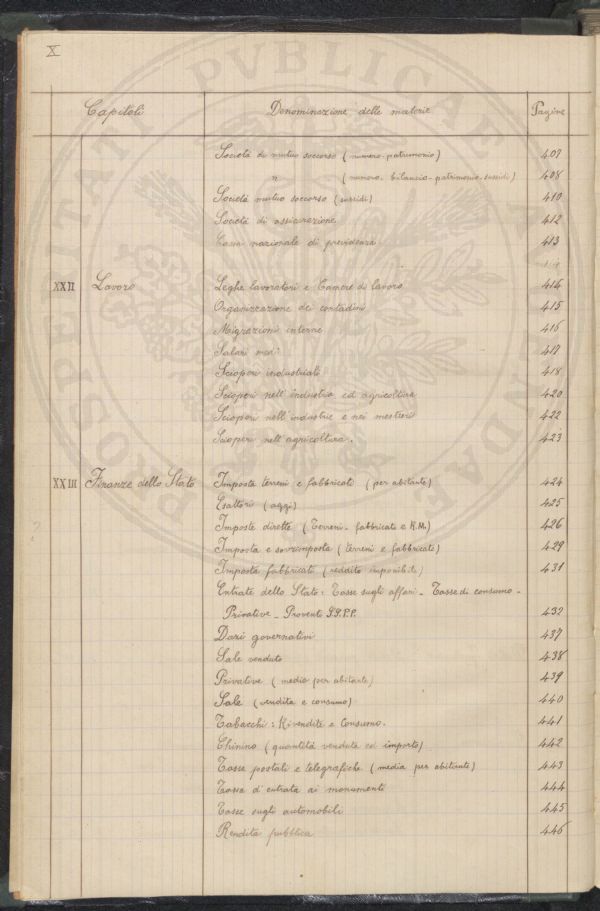 X
Capitoli Denominazione delle materie Pagine
Società di mutuo soccorso (numero-patrimonio) 407
" (numero, bilancio-patrimonio-sussidi) 408
Società mutuo soccorso (sussidi) 410
Società di assicurazione 412
Cassa nazionale di previdenza 413
XXII Lavoro Leghe lavoratori e Camere di lavoro 414
Organizzazione dei contadini 415
Migrazioni interne 416
Salari medi 417
Scioperi industriali 418
Scioperi nell'industria ed agricoltura 420
Scioperi nell'industrie e nei mestieri 422
Scioperi nell'agricoltura. 423
XXIII Finanze dello Stato Imposta terreni e fabbricati (per abitante) 424
Esattori (aggi) 425
Imposte dirette (Terreni-fabbricati e R.M.) 426
Imposta e sovrimposta (terreni e fabbricati) 429
Imposta fabbricati (reddito imponibile) 431
Entrate dello Stato: Tasse sugli affari - Tasse di consumo -
Privative - Proventi SS.PP. 432
Dazi governativi 437
Sale venduto 438
Privative (media per abitante) 439
Sale (vendita e consumo) 440
Tabacchi: Rivendite e Consumo. 441
Chinino (quantità venduta ed importo) 442
Tasse postali e telegrafiche (media per abitante) 443
Tassa d'entrata ai monumenti 444
Tasse sugli automobili 445
Rendita pubblica 446
PUBLICAE
PROSPERITATI